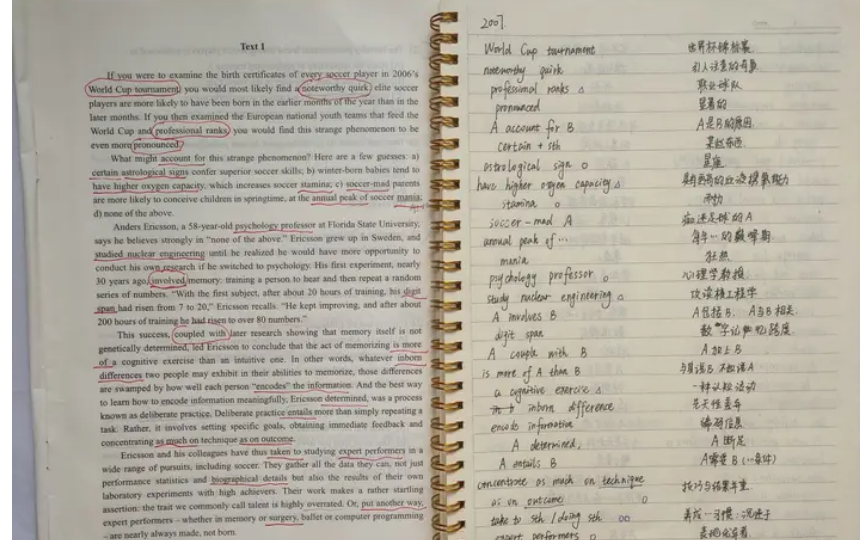 Text 1
If you were to examine the birth certificates of every soccer player in 2006's
World Cup tournament, you would most likely find a noteworthy quirk: elite soccer
players are more likely to have been born in the earlier months of the year than in the
later months. If you then examined the European national youth teams that feed the
World Cup and professional ranks, you would find this strange phenomenon to be
even more pronounced.
What might account for this strange phenomenon? Here are a few guesses: a)
certain astrological signs confer superior soccer skills; b) winter-born babies tend to
have higher oxygen capacity, which increases soccer stamina; c) soccer-mad parents
are more likely to conceive children in springtime, at the annual peak of soccer mania;
d) none of the above.
Anders Ericsson, a 58-year-old psychology professor at Florida State University,
says he believes strongly in "none of the above." Ericsson grew up in Sweden, and
studied nuclear engineering until he realized he would have more opportunity to
conduct his own research if he switched to psychology. His first experiment, nearly
30 years ago, involved memory: training a person to hear and then repeat a random
series of numbers. "With the first subject, after about 20 hours of training, his digit
span had risen from 7 to 20," Ericsson recalls. "He kept improving, and after about
200 hours of training he had risen to over 80 numbers."
This success, coupled with later research showing that memory itself is not
genetically determined, led Ericsson to conclude that the act of memorizing is more
of a cognitive exercise than an intuitive one. In other words, whatever inborn
differences two people may exhibit in their abilities to memorize, those differences
are swamped by how well each person "encodes" the information. And the best way
to learn how to encode information meaningfully, Ericsson determined, was a process
known as deliberate practice. Deliberate practice entails more than simply repeating a
task. Rather, it involves setting specific goals, obtaining immediate feedback and
concentrating as much on technique as on outcome.
Ericsson and his colleagues have thus taken to studying expert performers in a
wide range of pursuits, including soccer. They gather all the data they can, not just
performance statistics and biographical details but also the results of their own
laboratory experiments with high achievers. Their work makes a rather startling
assertion: the trait we commonly call talent is highly overrated. Or, put another way,
expert performers – whether in memory or surgery, ballet or computer programming
– are nearly always made, not born.
2007.
World Cup tournament 世界杯锦标赛
noteworthy quirk 引人注意的奇象
professional ranks 职业球队
pronounced 显著的
A account for B A是B的原因
certain + sth 某些东西
astrological sign 星座
have higher oxygen capacity
stamina
soccer-mad A 痴迷足球的A
annual peak of … 每年…的巅峰期
mania 狂热
psychology professor 心理学教授
study nuclear engineering 攻读核工程学
A involves B A包括B. A与B相关
digit span 数字记忆跨度
A couple with B A加上B
is more of A than B 与其说B不如说A
a cognitive exercise 一种认知活动
inborn difference 先天性差异
encode information 编码信息
A determined, A断定
A entails B A需要B (…条件)
concentrate as much on technique 技巧与结果并重
as on outcome
take to sth / doing sth 养成…习惯；沉迷于
expert performers